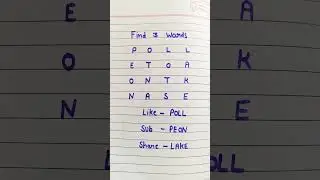 Find 3 Words
P O L L
E T O A
O N T K
N A S E
Like - POLL
Sub - PEON
Share - LAKE